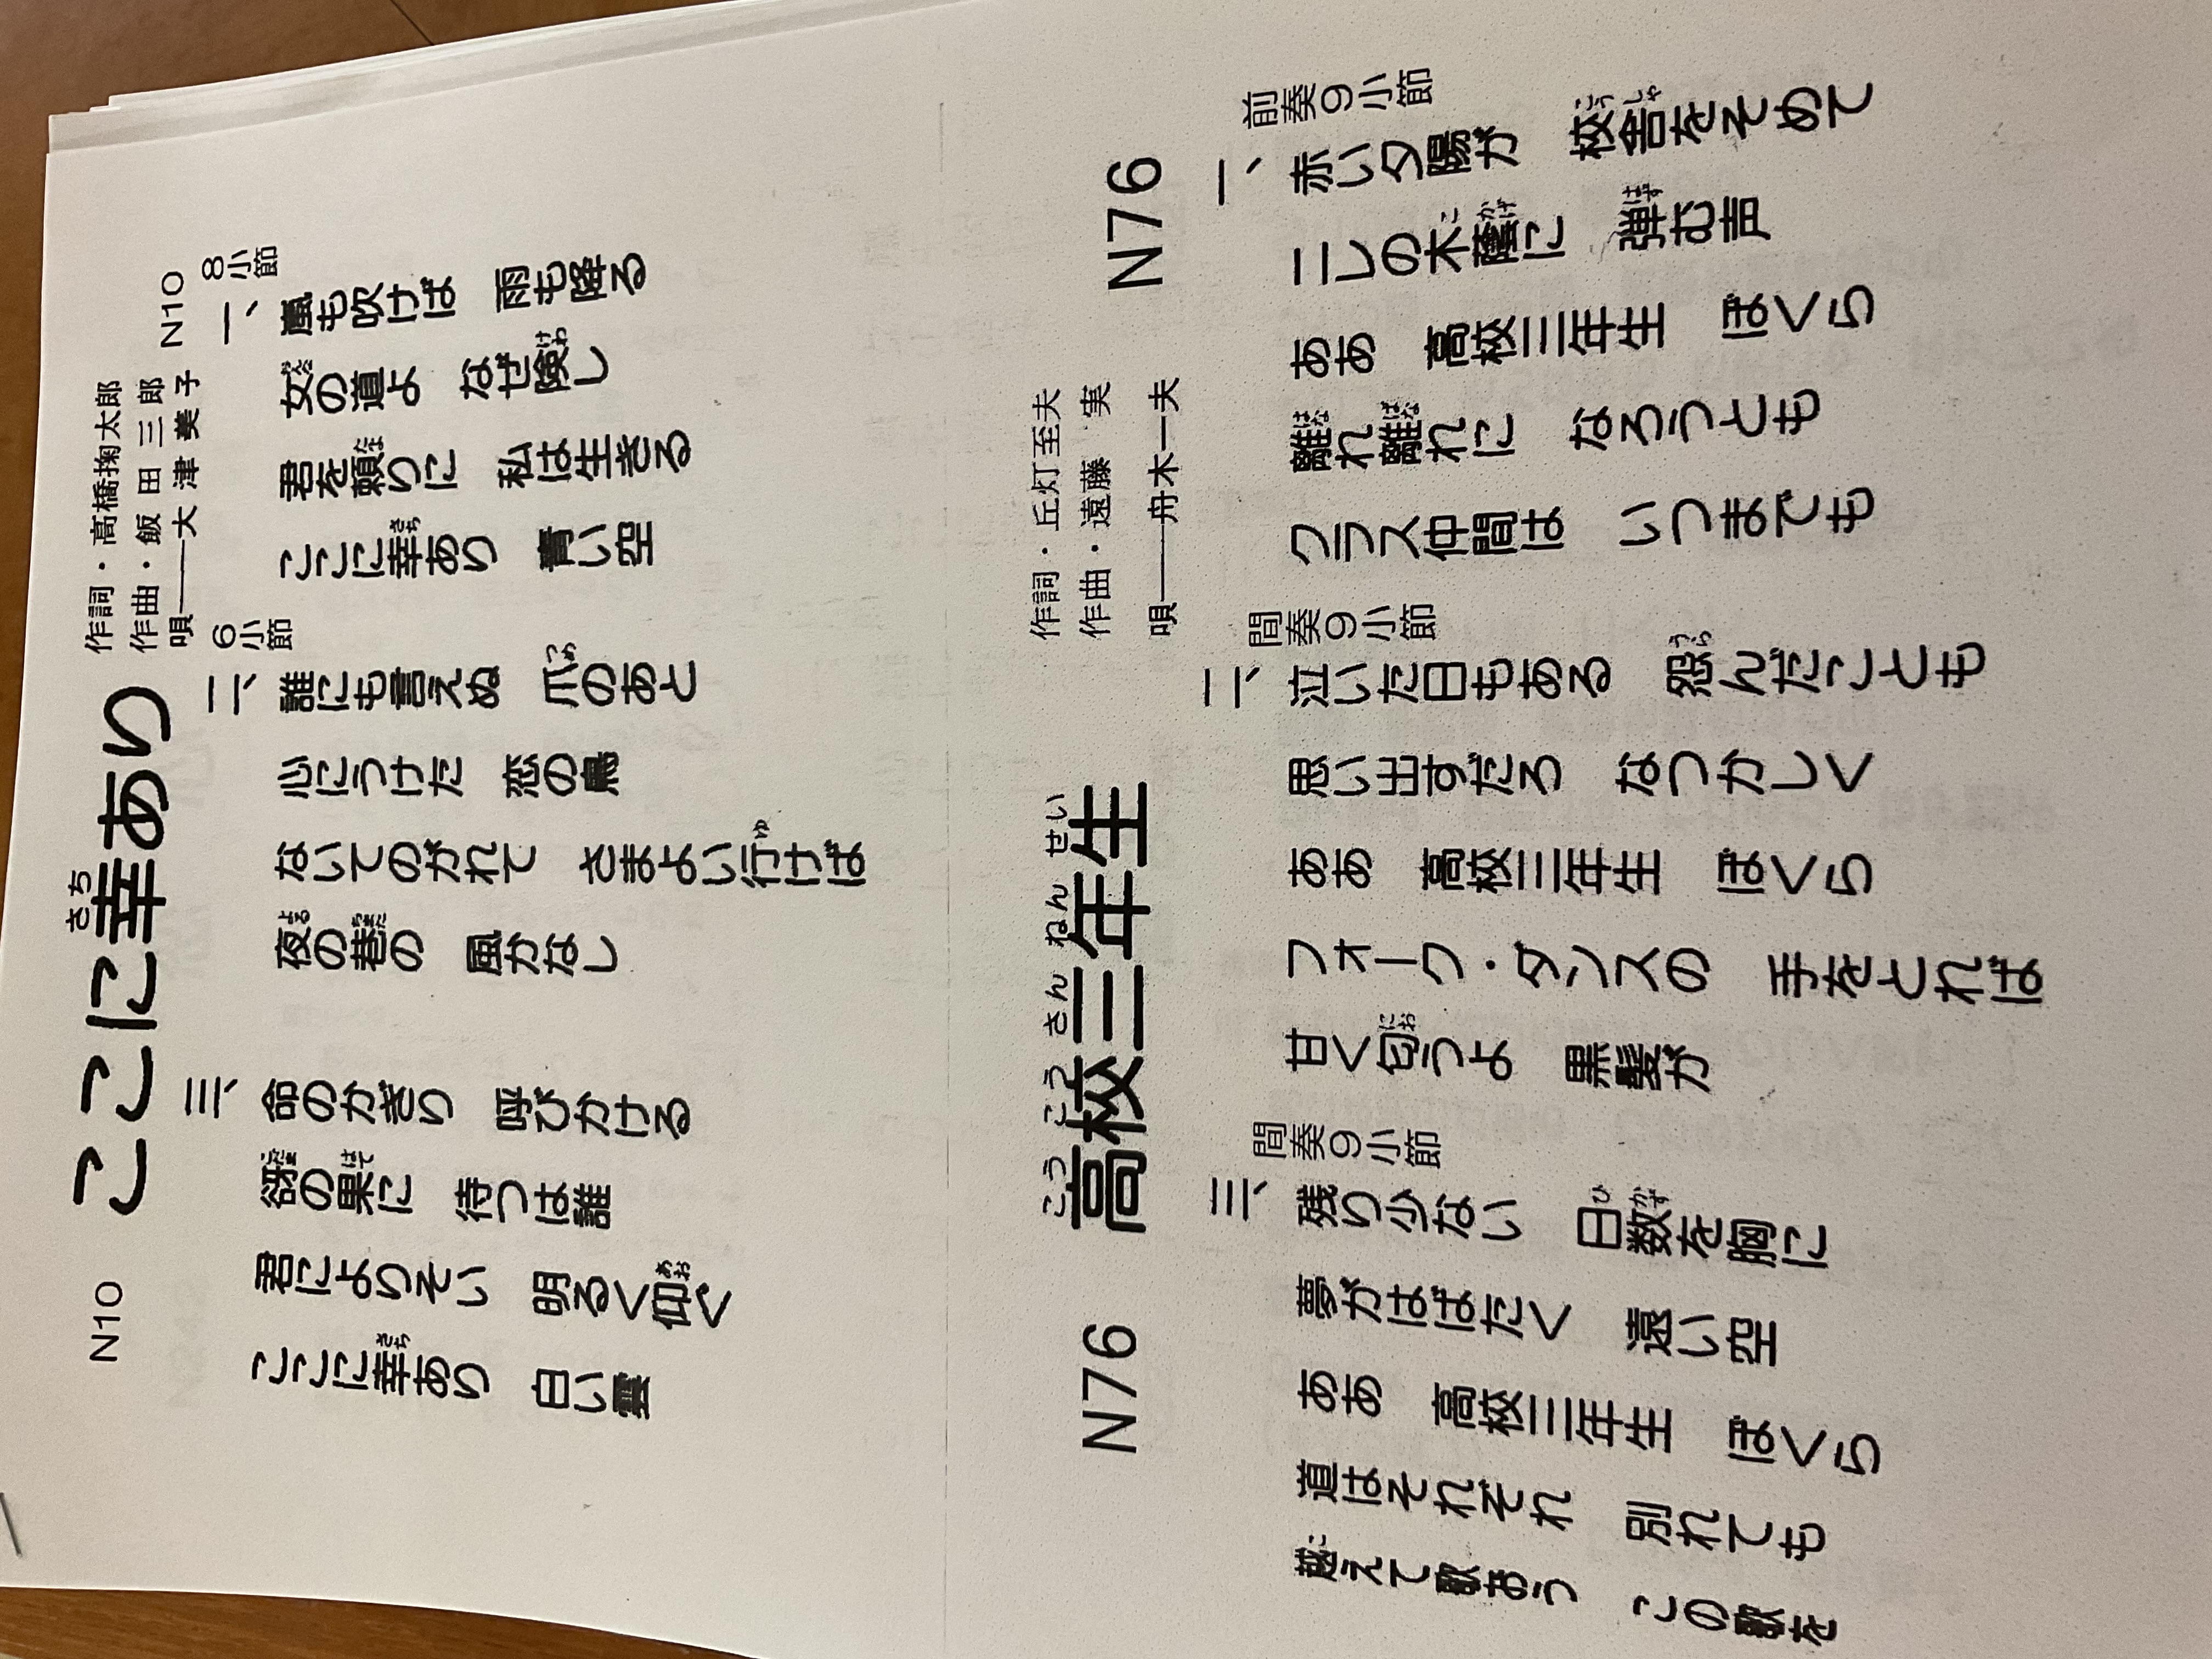 N10
さち
ここに幸あり
作詞・高橋掬太郎
作曲・飯田三郎
唄――大津美子
N10
8小節
一、嵐も吹けば 雨も降る
女の道よ なぜ険し
けわ
君を頼りに 私は生きる
ここに幸あり 青い空
さち
6小節
二、誰にも言えぬ 爪のあと
つめ
心にうけた 恋の鳥
ないてのがれて さまよい行けば
ゆ
夜の巷の 風かなし
よる
三、命のかぎり 呼びかける
谺の果に 待つは誰
はて
君によりそい 明るく仰ぐ
あお
ここに幸あり 白い雲
さち
N76
こうこうさんねんせい
高校三年生
作詞・丘灯至夫
作曲・遠藤 実
唄――舟木一夫
N76
前奏9小節
一、赤い夕陽が 校舎をそめて
こうしゃ
ニレの木蔭に 弾む声
こかげ はず
ああ 高校三年生 ぼくら
離れ離れに なろうとも
はな ばな
クラス仲間は いつまでも
間奏9小節
二、泣いた日もある 怨んだことも
うら
思い出すだろ なつかしく
ああ 高校三年生 ぼくら
フォーク・ダンスの 手をとれば
甘く匂うよ 黒髪が
にお
間奏9小節
三、残り少ない 日数を胸に
ひかず
夢がはばたく 遠い空
ああ 高校三年生 ぼくら
道はそれぞれ 別れても
越えて歌おう この歌を
こ